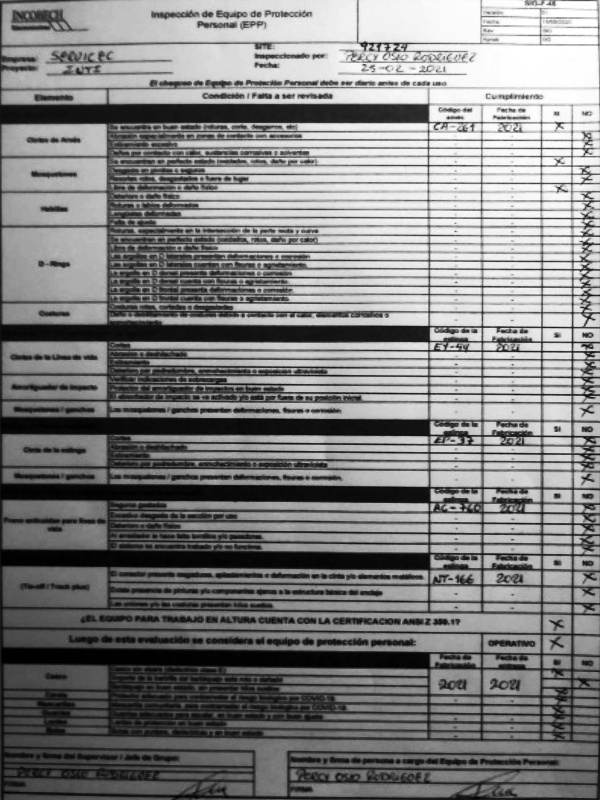 INCOBECH
Inspección de Equipo de Protección Personal (EPP)
SIG-F-46
Empresa: SERVITEC
Proyecto: INTI
SITE: 921724
Inspeccionado por: PERCY OSIO RODRIGUEZ
Fecha: 25-02-2021
El chequeo de Equipo de Protección Personal debe ser diario antes de cada uso
Elemento Condición / Falta a ser revisada Cumplimiento
Código del arnés Fecha de Fabricación SI NO
Cintas de Arnés
Se encuentra en buen estado (roturas, corte, desgarros, etc) CA-261 2021 X
Abrasión especialmente en zonas de contacto con accesorios X
Estiramiento excesivo X
Daños por contacto con calor, sustancias corrosivas o solventes X
Mosquetones
Se encuentran en perfecto estado (oxidados, rotos, daño por calor) X
Desgaste en pivotes o seguros X
Resortes rotos, desgastados o fuera de lugar X
Libre de deformación o daño físico X
Hebillas
Deterioro o daño físico X
Roturas o lados deformados X
Lengüetas deformadas X
Falta de ajuste X
D - Rings
Roturas, especialmente en la intersección de la parte recta y curva X
Se encuentran en perfecto estado (oxidados, rotos, daño por calor) X
Libre de deformación o daño físico X
Las argollas en D laterales presentan deformaciones o corrosión X
Las argollas en D laterales cuentan con fisuras o agrietamiento. X
La argolla en D dorsal presenta deformaciones o corrosión X
La argolla en D dorsal cuenta con fisuras o agrietamiento. X
La argolla en D frontal presenta deformaciones o corrosión. X
La argolla en D frontal cuenta con fisuras o agrietamiento. X
Costuras
Costuras rotas, cortadas o desgastadas X
Daño o debilitamiento de costuras debido a contacto con el calor, elementos corrosivos o X
Código de la eslinga Fecha de Fabricación SI NO
Cintas de la Línea de vida
Cortes EY-44 2021 X
Abrasión o deshilachado X
Estiramiento X
Deterioro por podredumbre, enmohecimiento o exposición ultravioleta X
Amortiguador de impacto
Verificar indicaciones de sobrecargas X
Protector del amortiguador de impactos en buen estado X
El absorbedor de impacto se ve activado y/o está por fuera de su posición inicial. X
Mosquetones / ganchos
Los mosquetones / ganchos presentan deformaciones, fisuras o corrosión. X
Código de la eslinga Fecha de Fabricación SI NO
Cinta de la eslinga
Cortes EP-37 2021 X
Abrasión o deshilachado X
Estiramiento X
Deterioro por podredumbre, enmohecimiento o exposición ultravioleta X
Mosquetones / ganchos
Los mosquetones / ganchos presentan deformaciones, fisuras o corrosión. X
Código de la eslinga Fecha de Fabricación SI NO
Freno anticaídas para línea de vida
Seguros gastados AC-760 2021 X
Excesivo desgaste de la sección por uso X
Deterioro o daño físico X
Al arrestador le hace falta tornillos y/o pasadores. X
El sistema se encuentra trabado y/o no funciona. X
Código de la eslinga Fecha de Fabricación SI NO
(Tie-off / Track plus)
El conector presenta rasgaduras, aplastamientos o deformación en la cinta y/o elementos metálicos. NT-166 2021 X
Existe presencia de pinturas y/o componentes ajenos a la estructura básica del anclaje X
Las uniones y/o las costuras presentan hilos sueltos. X
¿EL EQUIPO PARA TRABAJO EN ALTURA CUENTA CON LA CERTIFICACION ANSI Z 359.1? X
Luego de esta evaluación se considera el equipo de protección personal: OPERATIVO X
Fecha de Fabricación Fecha de SI NO
Casco 2021 2021
Careta
Mascarillas
Guantes
Lentes
Botas
Nombre y firma del Supervisor / Jefe de Grupo:
PERCY OSIO RODRIGUEZ
FIRMA
Nombre y firma de persona a cargo del Equipo de Protección Personal:
PERCY OSIO RODRIGUEZ
FIRMA